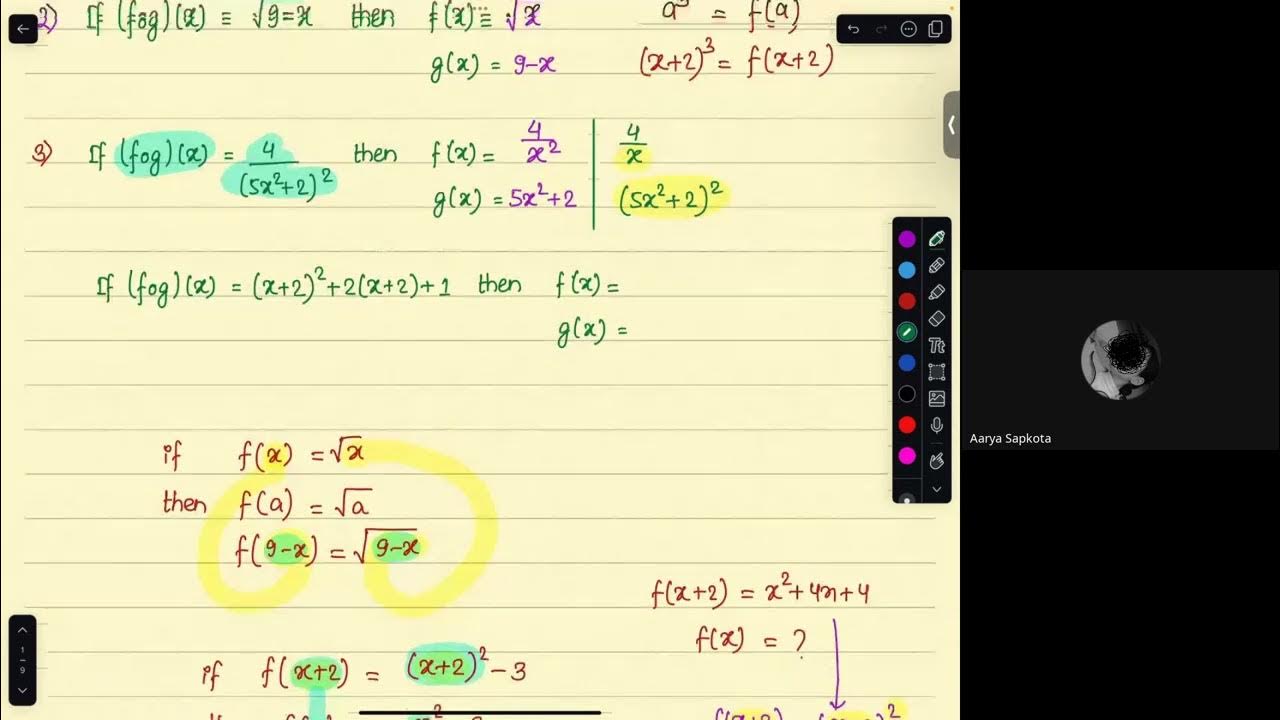 2) If (fog)(x) ≡ √9-x then f(x) ≡ √x
g(x) = 9-x
a³ = f(a)
(x+2)³ = f(x+2)
3) If (fog)(x) = 4/(5x²+2)² then f(x) = 4/x² | 4/x
g(x) = 5x²+2 | (5x²+2)²
If (fog)(x) = (x+2)²+2(x+2)+1 then f(x) =
g(x) =
if f(x) = √x
then f(a) = √a
f(9-x) = √9-x
f(x+2) = x²+4x+4
f(x) = ?
if f(x+2) = (x+2)²-3
Tt
1
9
Aarya Sapkota